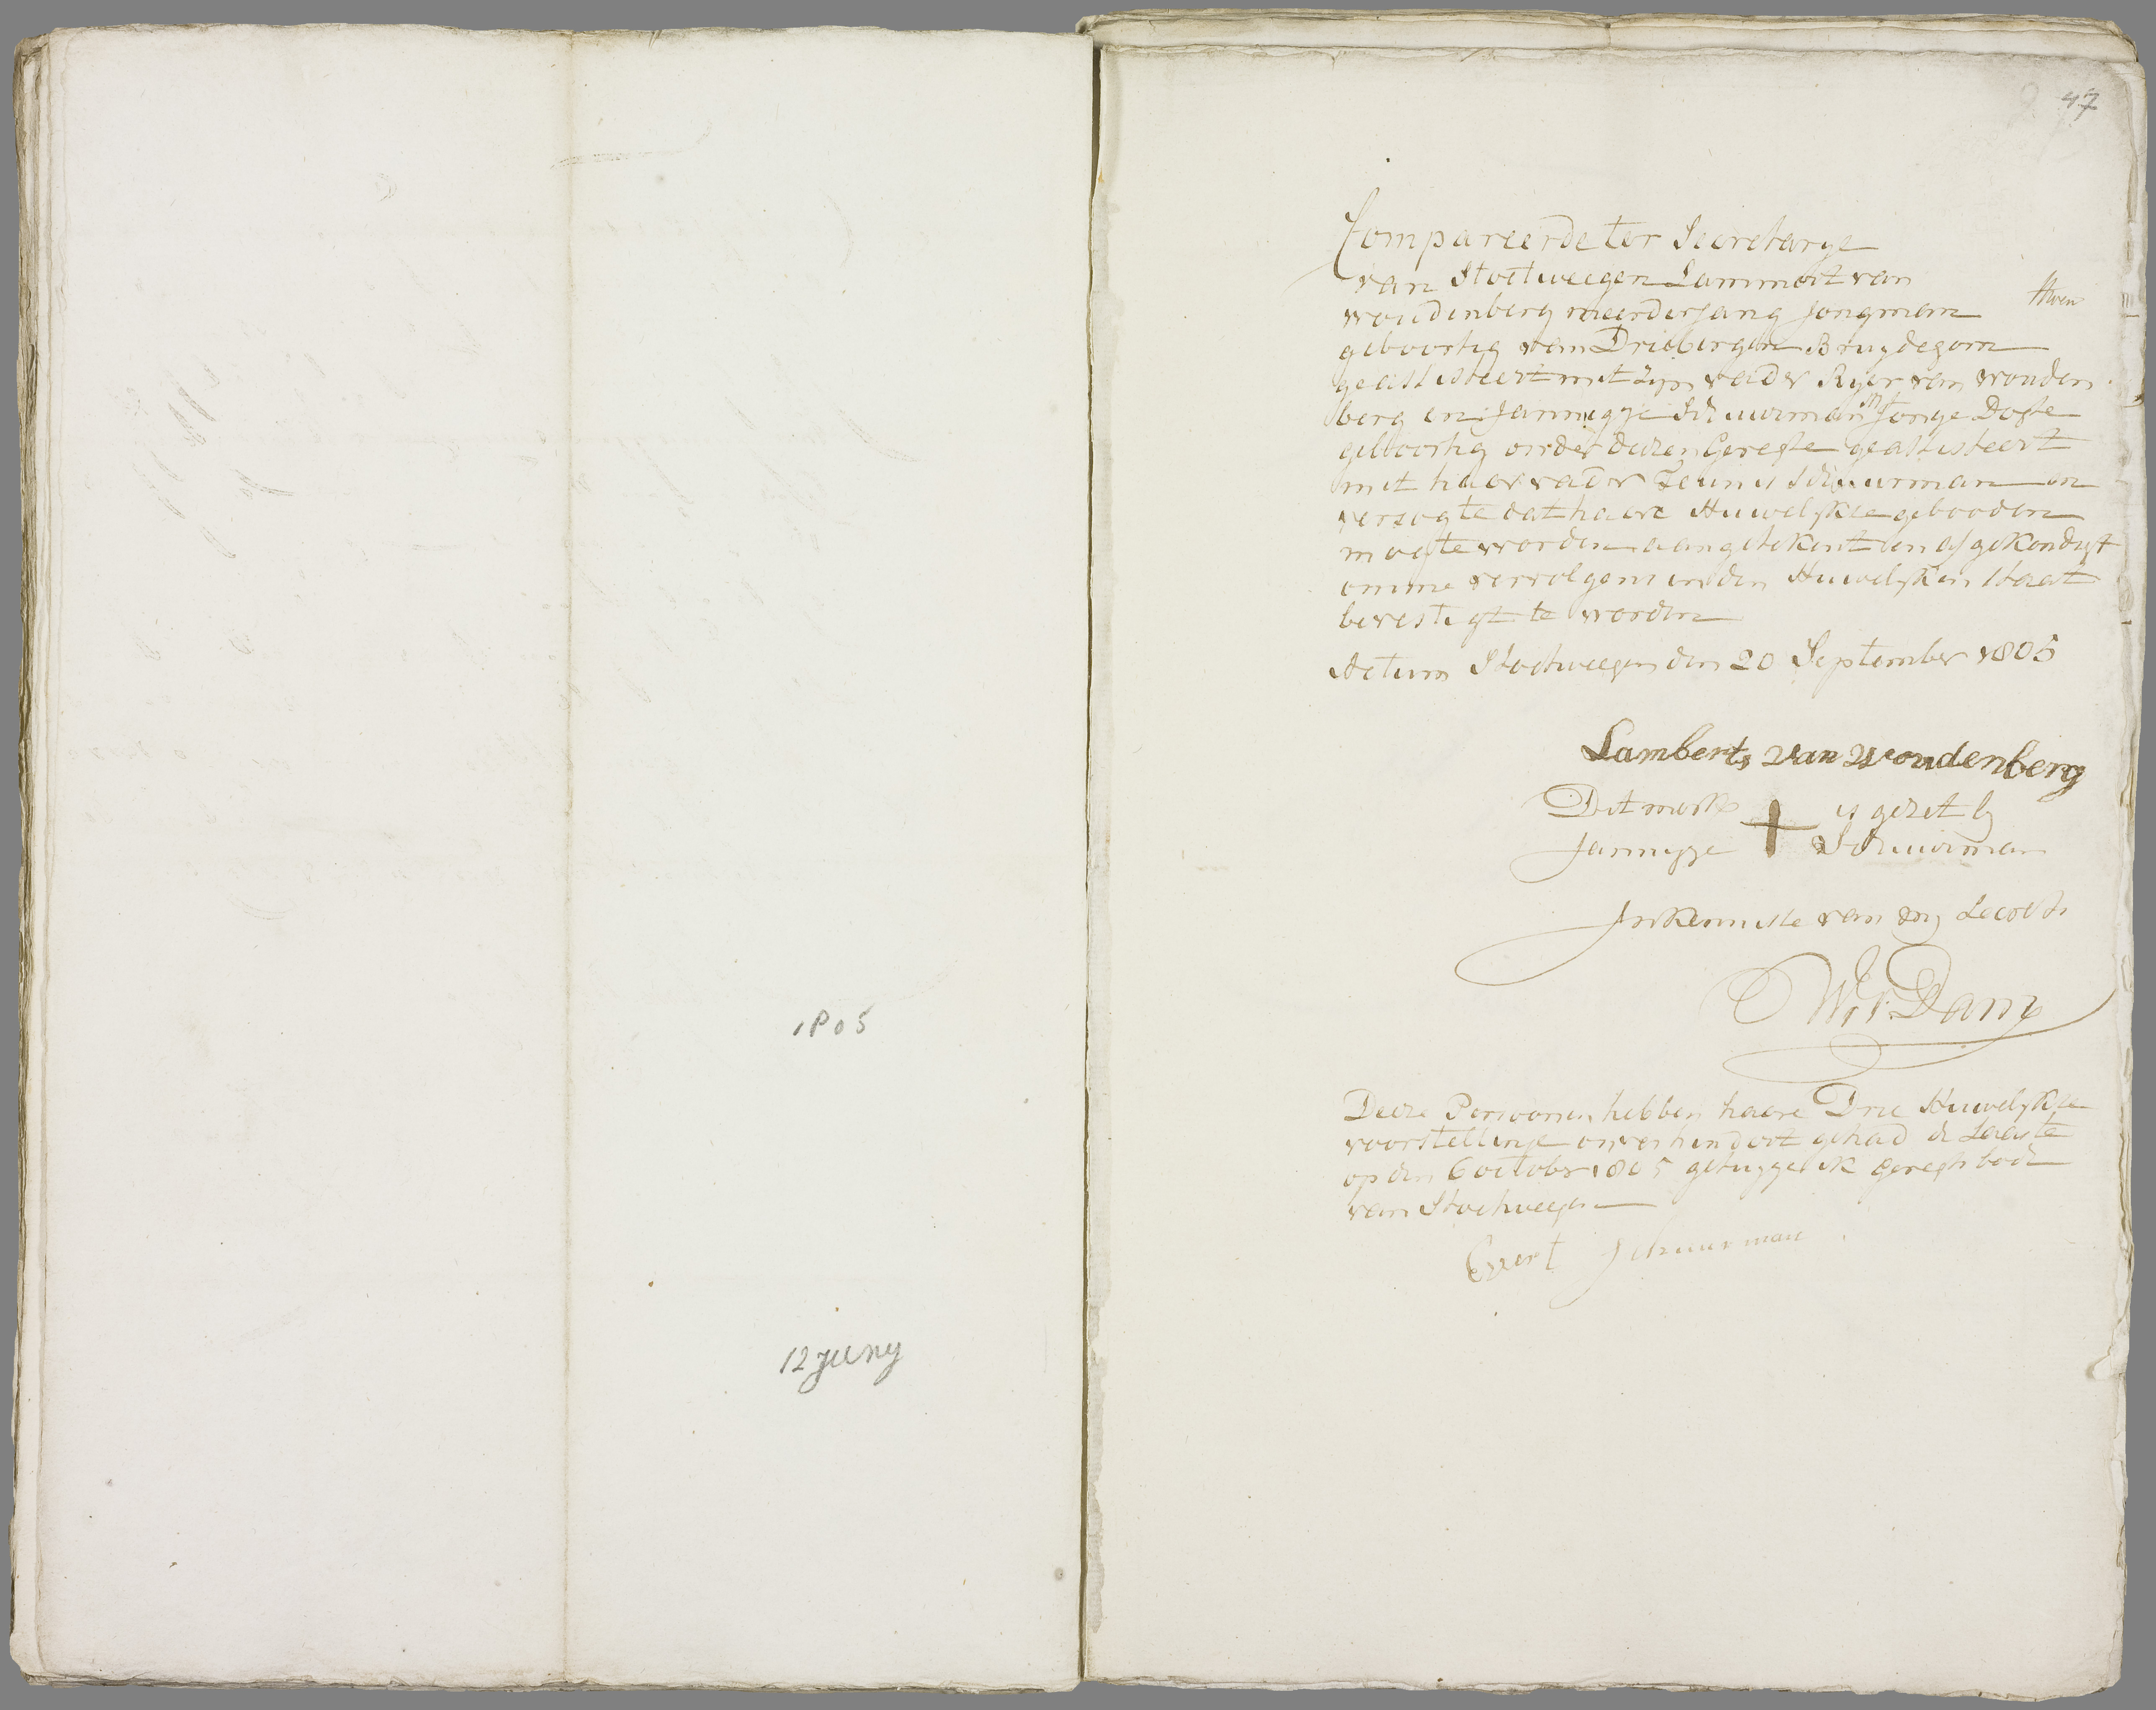 1805
12 Juny
47
Compareerde ter Secretarye
van Stoetweegen Lammert van
woudenberg meerderjarig Jongman
geboortig van Driebergen Bruydegom
geassisteert met zijn vader Ryer van wouden
berg en Jannigje Schuurman Jonge Dogter
geboortig onder dezen Geregte geassisteert
met haar vader Teunis Schuurman en
versogte dat haare Huwelykse gebooden
mogte worden aangetekent en afgekondigt
omme vervolgens in den Huwelyken staat
bevestigt te worden
Actum Stoetweegen den 20 September 1805
Lamberts van Woudenberg
Dit merk + is gezet by
Jannigje Schuurman
In kennisse van my Secrets
Deeze Persoonen hebben haare Drie Huwelykse
voorstellinge onverhindert gehad de Laaste
op den 6 october 1805 getuyge ik geregtsbode
van Stoetweegen
Evert Schuurman